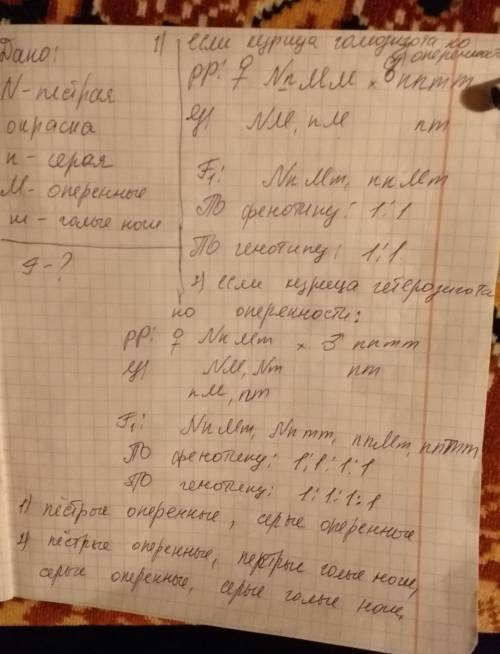 Дано:
N - пёстрая
окраска
n - серая
M - оперенные
m - голые ноги
F - ?
1) если курица гомозигота по
оперенности
PP: ♀ NnMM × ♂ nnmm
G NM, nM nm
F1: NnMm, nnMm
По фенотипу: 1:1
По генотипу: 1:1
2) если курица гетерозигота
по оперенности:
PP: ♀ NnMm × ♂ nnmm
G NM, Nm nm
nM, nm
F1: NnMm, Nnmm, nnMm, nnmm
По фенотипу: 1:1:1:1
По генотипу: 1:1:1:1
1) пёстрые оперенные, серые оперенные
2) пёстрые оперенные, пестрые голые ноги,
серые оперенные, серые голые ноги,